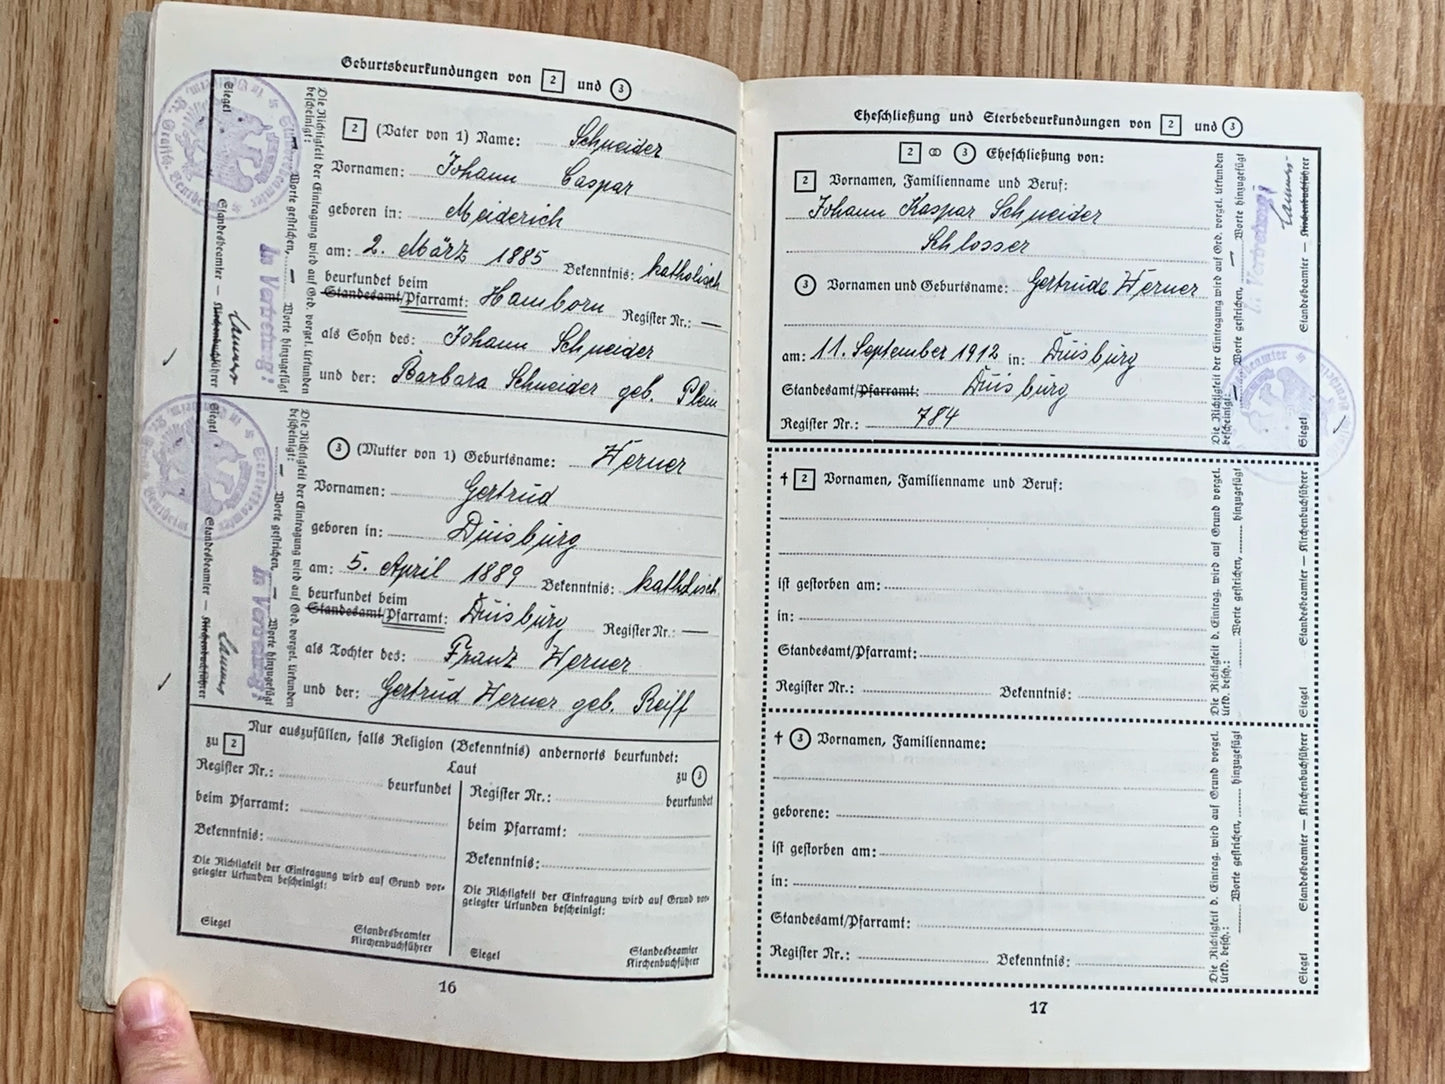 Geburtsbeurkundungen von 2 und 3
2 (Vater von 1) Name: Schneider
Vornamen: Johann Caspar
geboren in: Meiderich
am: 2. März 1885 Bekenntnis: katholisch
beurkundet beim
Standesamt/Pfarramt: Hamborn Register Nr.: —
als Sohn des: Johann Schneider
und der: Barbara Schneider geb. Plein
Die Richtigkeit der Eintragung wird auf Grd. vorgel. Urkunden
bescheinigt: — Worte gestrichen, — Worte hinzugefügt
In Vertretung!
Siegel Standesbeamter — Kirchenbuchführer
3 (Mutter von 1) Geburtsname: Werner
Vornamen: Gertrud
geboren in: Duisburg
am: 5. April 1889 Bekenntnis: katholisch
beurkundet beim
Standesamt/Pfarramt: Duisburg Register Nr.: —
als Tochter des: Franz Werner
und der: Gertrud Werner geb. Reiff
Die Richtigkeit der Eintragung wird auf Grd. vorgel. Urkunden
bescheinigt: — Worte gestrichen, — Worte hinzugefügt
In Vertretung!
Siegel Standesbeamter — Kirchenbuchführer
Nur auszufüllen, falls Religion (Bekenntnis) andernorts beurkundet:
zu 2 Laut zu 3
Register Nr.: beurkundet
beim Pfarramt:
Bekenntnis:
Die Richtigkeit der Eintragung wird auf Grund vor-
gelegter Urkunden bescheinigt:
Siegel Standesbeamter
Kirchenbuchführer
Register Nr.: beurkundet
beim Pfarramt:
Bekenntnis:
Die Richtigkeit der Eintragung wird auf Grund vor-
gelegter Urkunden bescheinigt:
Siegel Standesbeamter
Kirchenbuchführer
16
Eheschließung und Sterbebeurkundungen von 2 und 3
2 ⚭ 3 Eheschließung von:
2 Vornamen, Familienname und Beruf:
Johann Kaspar Schneider
Schlosser
3 Vornamen und Geburtsname: Gertrude Werner
am: 11. September 1912 in: Duisburg
Standesamt/Pfarramt: Duisburg
Register Nr.: 784
Die Richtigkeit der Eintragung wird auf Grd. vorgel. Urkunden
bescheinigt: — Worte gestrichen, — Worte hinzugefügt
In Vertretung!
Siegel Standesbeamter — Kirchenbuchführer
† 2 Vornamen, Familienname und Beruf:
ist gestorben am:
in:
Standesamt/Pfarramt:
Register Nr.: Bekenntnis:
Die Richtigkeit d. Eintrag. wird auf Grund vorgel.
Urkd. besch.: Worte gestrichen, hinzugefügt
Siegel Standesbeamter — Kirchenbuchführer
† 3 Vornamen, Familienname:
geborene:
ist gestorben am:
in:
Standesamt/Pfarramt:
Register Nr.: Bekenntnis:
Die Richtigkeit d. Eintrag. wird auf Grund vorgel.
Urkd. besch.: Worte gestrichen, hinzugefügt
Siegel Standesbeamter — Kirchenbuchführer
17